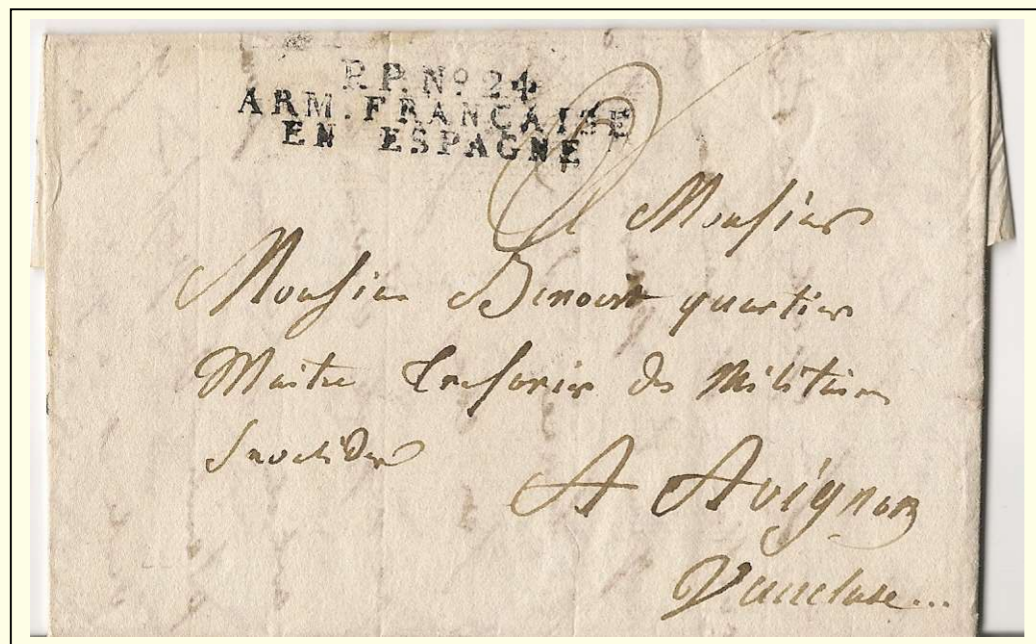 P.P.Nº 24
ARM. FRANÇAISE
EN ESPAGNE
A Monsieur
Monsieur Benoist quartier
Maitre Tresorier des Militaires
Invalides
A Avignon
Vaucluse...